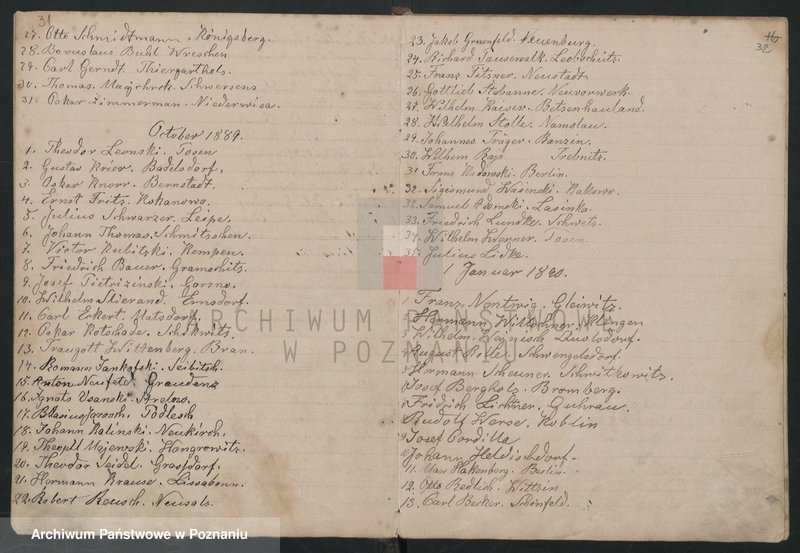 31
27. Otto Schmidtmann, Königsberg.
28. Boruslaus Buhl Wreschen
29. Carl Gerndt. Thiergarthols.
30. Thomas. Schwersens
31. Oskar Zimmerman Niederwisa.
October 1889.
1. Theodor Leonski. Posen
2. Gustav Krier. Badelsdorf.
3. Oskar Knorr. Bernstadt.
4. Ernst Fritz. Kokanowo.
5. Julius Schwarzer. Leipe.
6. Johann Thomas. Schmitschen.
7. Victor Kubitzki. Kempen.
8. Friedrich Bauer. Gramschits.
9. Josef Pietrizinski. Gorsno.
10. Wilhelm Stierand. Ernsdorf.
11. Carl Eckert. Matsdorf.
12. Oskar Kotschade. Schikwits.
13. Traugott Wittenberg. Bran.
14. Romann Jankofski. Seibitsk.
15. Anton Neufeld. Graudenz
16. Ignats Usanski. Strelno.
17. Blasius Jarosch. Podlesch
18. Johann Kalinski. Neukirch.
19. Theopil Majewski. Wongrowitz.
20. Theodor Seidel. Grasfdorf.
21. Hermann Krause. Lissabonn.
22. Robert Reusch. Neusals.
16
32
23. Jakob Gruenfeld. Neuenburg.
24. Richard Tausewalk. Leobschütz.
25. Franz Titzner. Neustadt
26. Gottlieb Neuvorwerk.
27. Wilhelm Kaiser. Retsenhauland.
28. Wilhelm Stolle. Namslau.
29. Johannes Träger. Banzin.
30. Wilhelm Raja Trebnitz.
31 Franz Kadomski. Berlin.
32. Sigismund Wasinski. Kakewo.
32. Samuel Adomski. Lasinka.
33. Friedrich Lundke. Schwets.
34. Wilhelm Wenner. Posen.
35. Julius Lidke.
1 Januar 1890.
1 Franz Nentwig. Gleiwitz.
2 Hermann Willenner. Klingen
3 Wilhelm Hanisch. Luolsdorf.
4 August Kolle. Schwengelsdorf.
5 Hermann Scheuner. Schwitkowitz.
6 Josef Bergholz. Bromberg.
7 Fridrich Lichner. Guhrau.
8 Rudolf Werse. Koblin
9 Josef Cordilla
10 Johann Heldischdorf.
11. Max Halkenberg. Berlin.
12. Otto Redlich. Wittzin
13. Carl Becker. Schönfeld.
ARCHIWUM PAŃSTWOWE
W POZNANIU
Archiwum Państwowe w Poznaniu